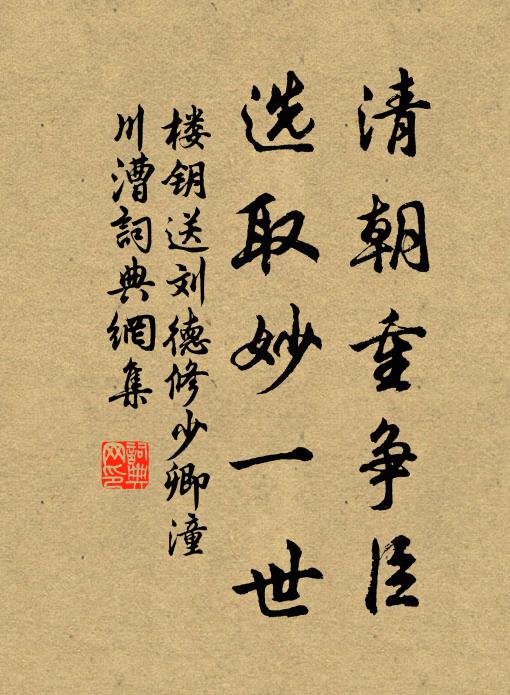 清朝重争臣
选取妙一世
楼钥送刘德修少卿潼
川漕詞典網集
詞典
网印